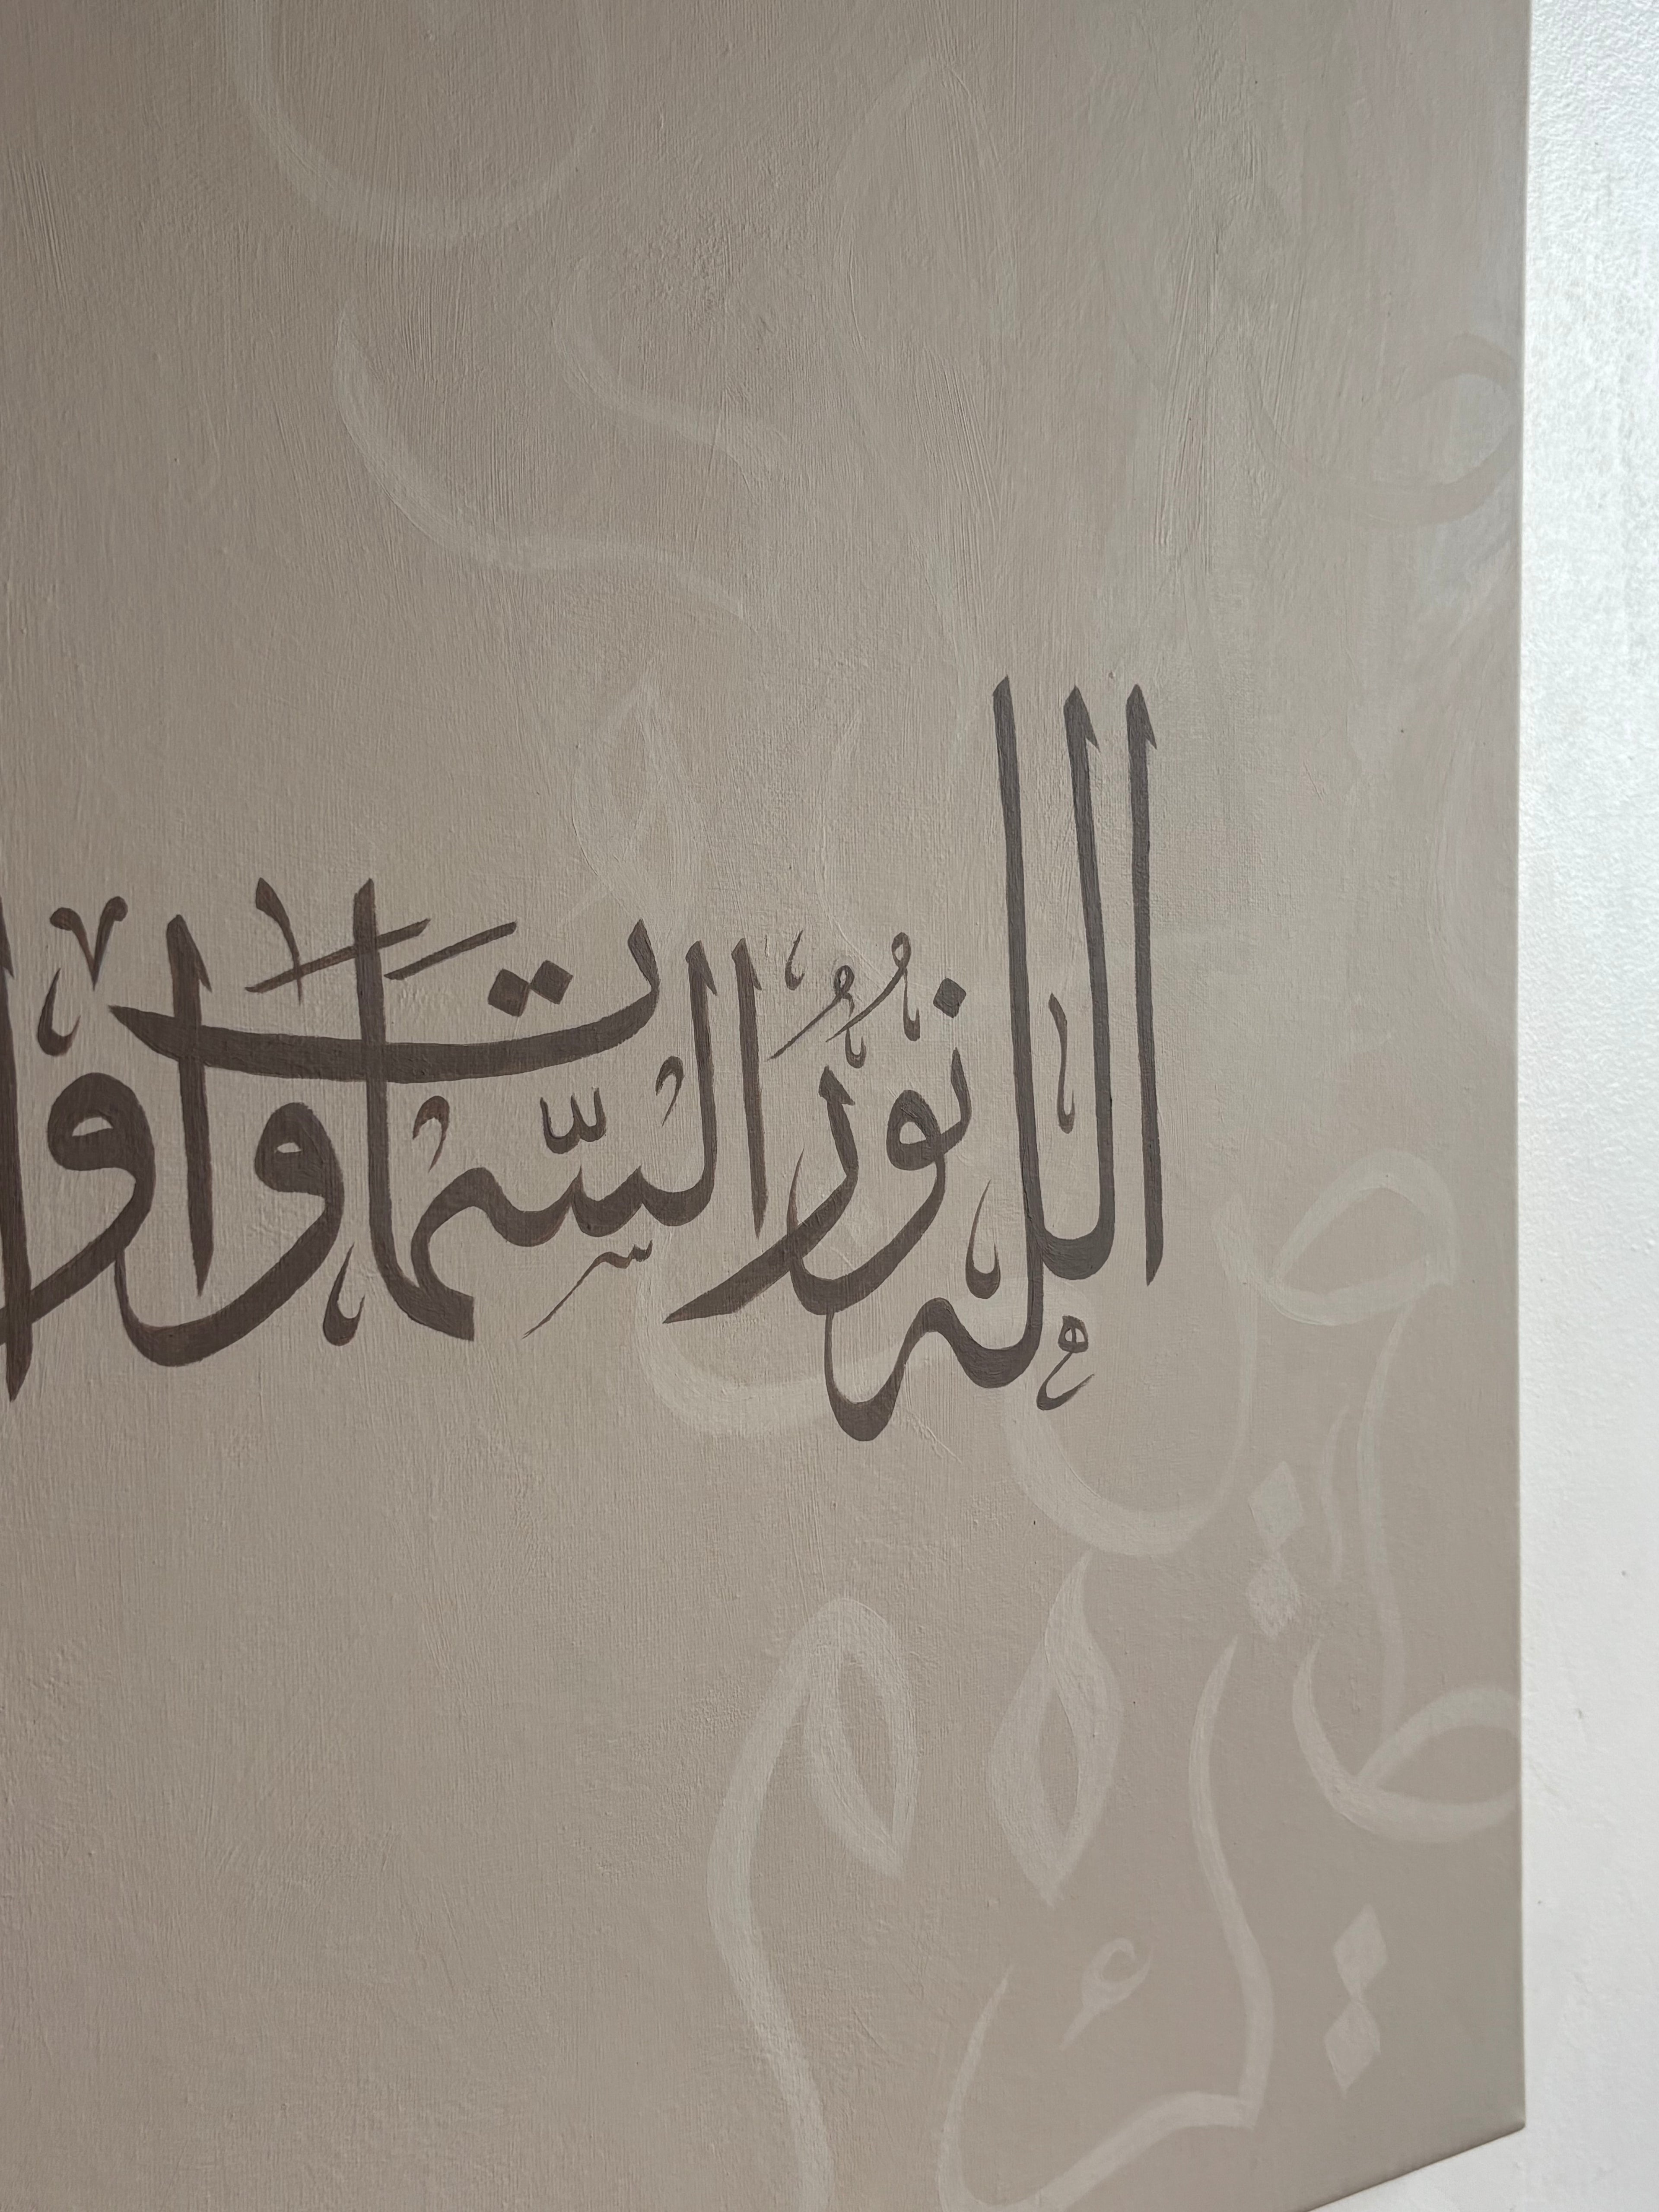 الله نُورُ السَّمَاوَاتِ وا